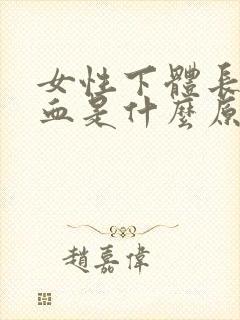 女性下體長
血是什麼原
趙嘉偉